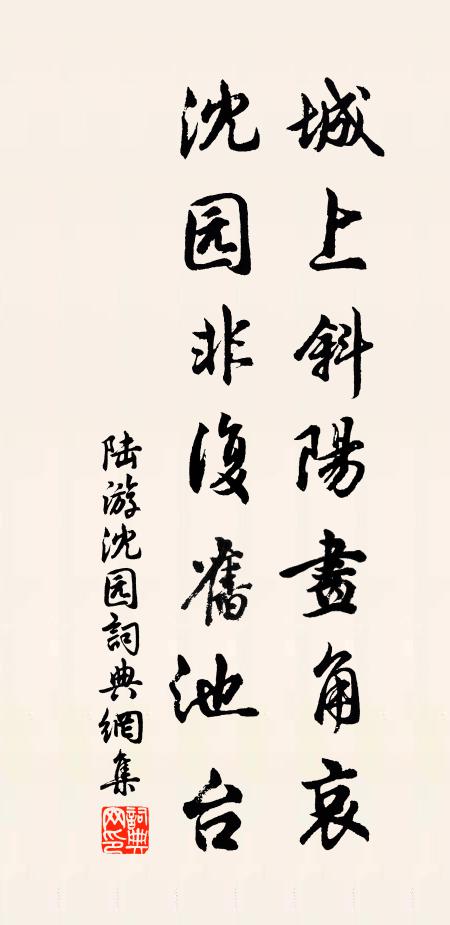 城上斜陽畫角哀
沈园非復舊池台
陆游沈园詞典網集
詞典網印